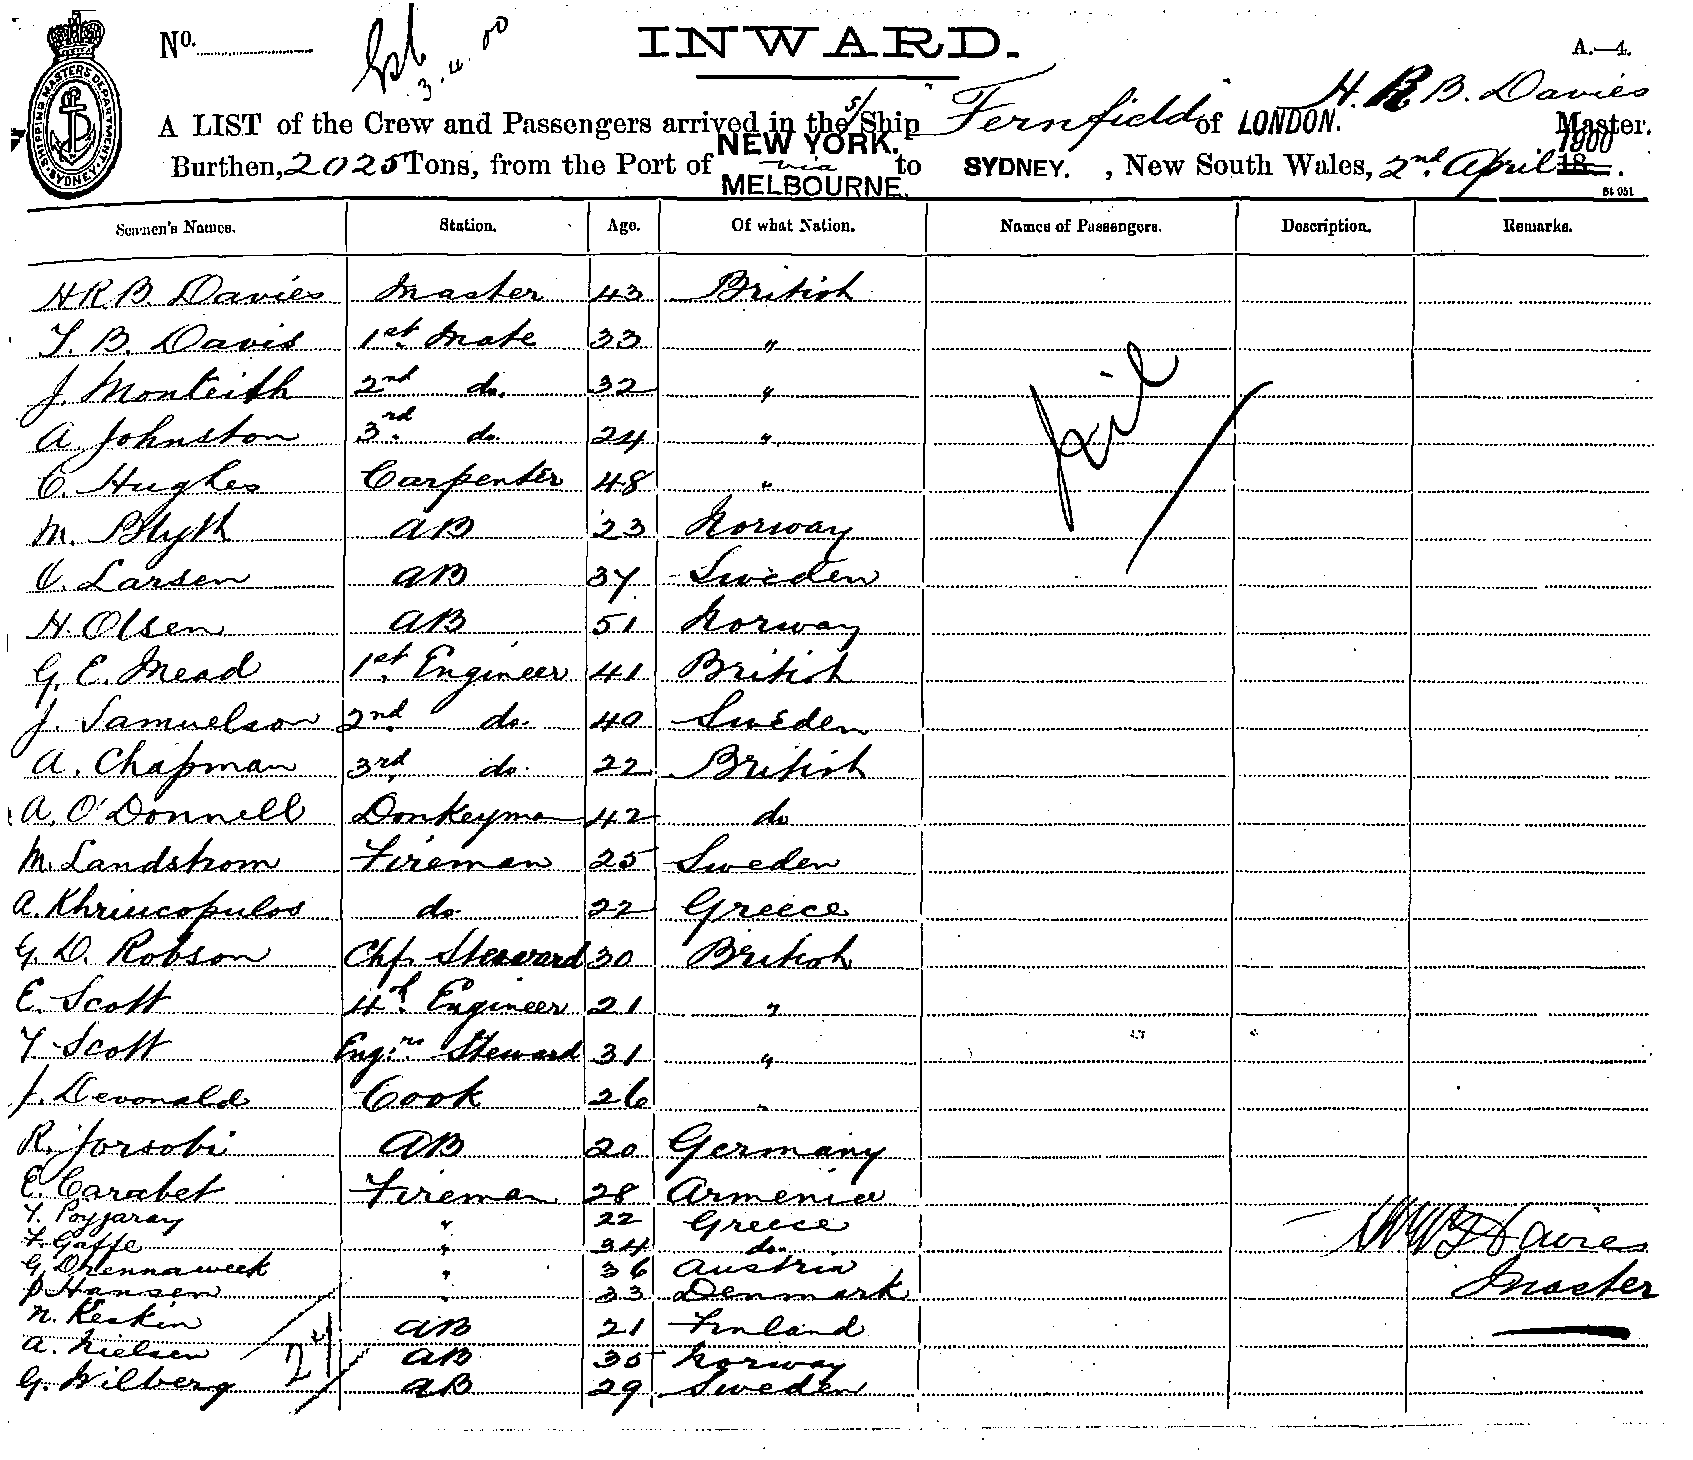 No.
3.4.00
INWARD.
A.—4.
SHIPPING MASTER'S DEPARTMENT SYDNEY
H. R. B. Davies
A LIST of the Crew and Passengers arrived in the s/ Ship Fernfield of LONDON. Master.
Burthen, 2025 Tons, from the Port of NEW YORK. via MELBOURNE. to SYDNEY. , New South Wales, 2nd April 18 1900.
Seamen's Names. Station. Age. Of what Nation. Names of Passengers. Description. Remarks.
H R B Davies Master 43 British
T. B. Davis 1st Mate 33 "
J. Monteith 2nd do. 32 "
A. Johnston 3rd do. 24 "
C. Hughes Carpenter 48 "
Nil
M. Blyth AB 23 Norway
O. Larsen AB 37 Sweden
H. Olsen AB 51 Norway
G. E. Mead 1st Engineer 41 British
J. Samuelson 2nd do. 40 Sweden
A. Chapman 3rd do. 22 British
A. O'Donnell Donkeyman 42 do
M. Landstrom Fireman 25 Sweden
A. do 22 Greece
G. D. Robson Chf. Steward 30 British
E. Scott 4th Engineer 21 "
T Scott Engrs Steward 31 "
J. Devonald Cook 26 "
R. Jorsobi AB 20 Germany
E. Carabet Fireman 28 Armenia
T. Poyjaray " 22 Greece
F. Gaffe " 34 do.
G. Drennaweek " 36 Austria
P Hansen " 33 Denmark
N. Keskin AB 21 Finland
A. Nielsen AB 35 Norway
G. Wilberg AB 29 Sweden
27
HRB Davies
Master